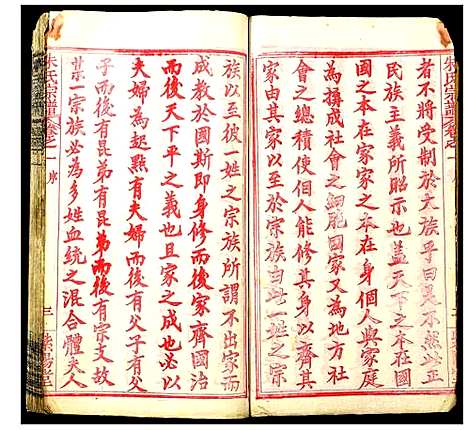 朱氏宗譜 卷之一
者不將受制於文族乎曰是不然此正
民族主義所昭示也蓋天下之本在國
國之本在家家之本在身個人與家庭
為構成社會之細胞國家又為地方社
會之總積使個人能修其身以齊其
家由其家以及一姓之宗族由此一姓之宗
族以推彼一姓之宗族所謂不出家而
成教於國斯即身修而後家齊國治
而後天下平之義也且家之成也必以
夫婦為起點有夫婦而後有父子有父
子而後有昆弟有昆弟而後有宗支故
禁一宗族必為多姓血統之混合體夫人
朱氏宗譜 卷之一 序 三 紫陽堂